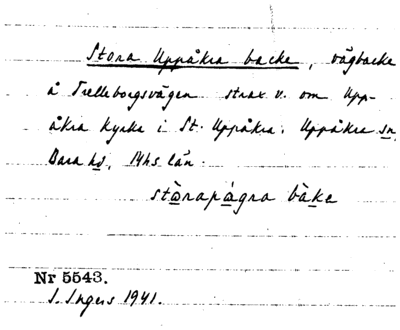 Stora Uppåkra backe, vägbacke
å Trelleborgsvägen strax v. om Upp-
åkra kyrka i St. Uppåkra. Uppåkra sn,
Bara hd, Mhs län.
stòrapágra bàke
Nr 5543.
I. Ingers 1941.